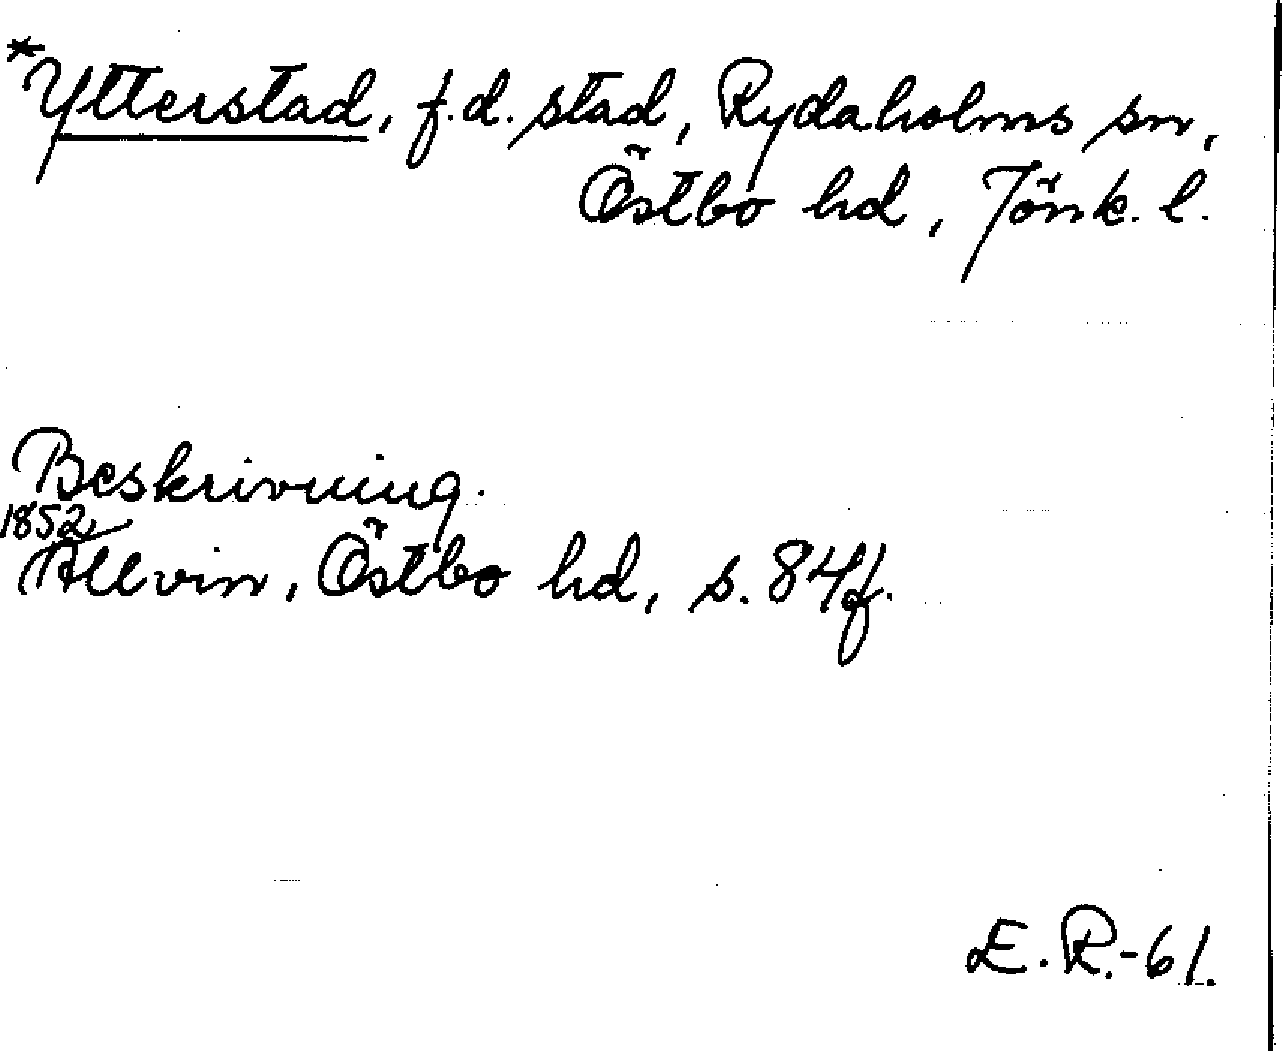 *Ytterstad, f.d. stad, Rydaholms sn,
Östbo hd, Jönk. l.
Beskrivning.
1852
Allvin, Östbo hd, s. 84f.
E.R.-61.